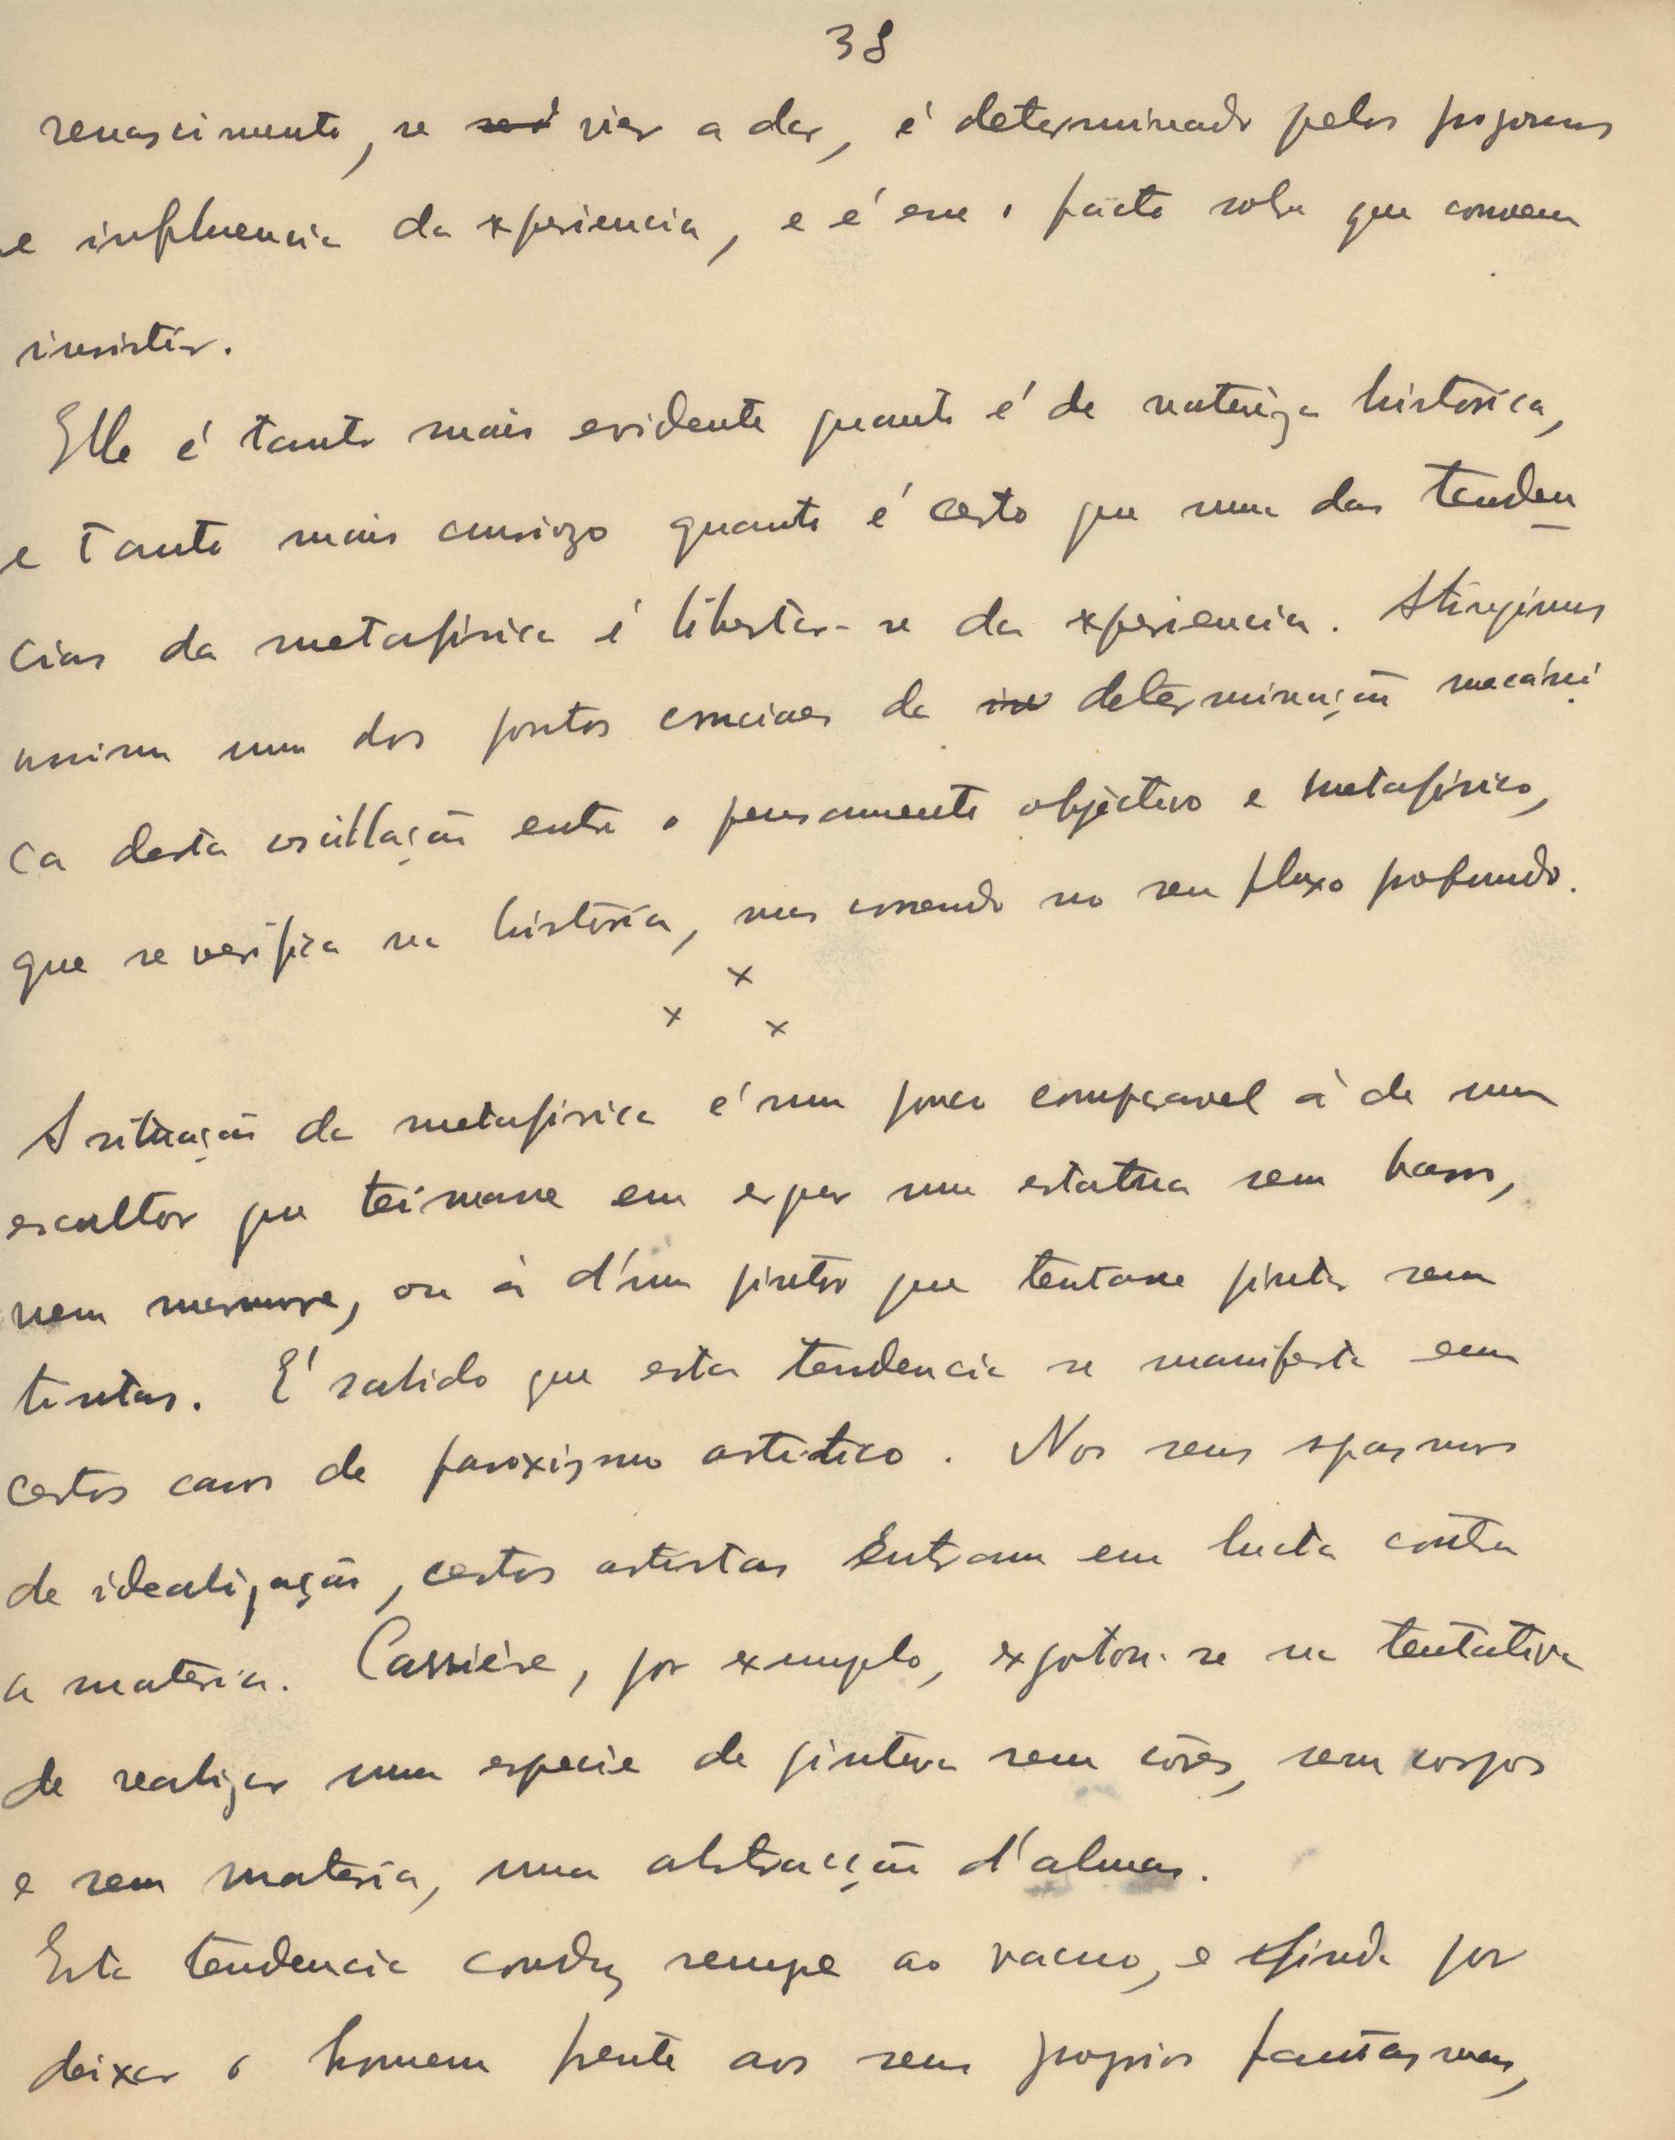 38
renascimento, se vier a dar, é determinado pelos progressos
e influencia da experiencia, e é esse o facto sobre que convem
insistir.
Elle é tanto mais evidente quanto é de natureza historica,
e tanto mais curiozo quanto é certo que uma das tenden
cias da metafisica é libertar-se da experiencia. Atingimos
assim um dos pontos cruciaes da determinação mecáni
ca desta oscillação entre o pensamento objectivo e metafisico,
que se verifica na historia, mas correndo no seu fluxo profundo.
x
x x
A situação da metafisica é um pouco comparavel á de um
escultor que teimasse em erguer uma estatua sem barro,
nem marmore, ou á d'um pintor que tentasse pintar sem
tintas. É sabido que esta tendencia se manifesta em
certos casos de paroxismo artistico. Nos seus espasmos
de idealização, certos artistas entram em lucta contra
a materia. Carrière, por exemplo, exgotou-se na tentativa
de realizar uma especie de pintura sem côres, sem corpos
e sem materia, uma abstracção d'almas.
Esta tendencia conduz sempre ao vacuo, e finda por
deixar o homem frente aos seus proprios fantasmas,